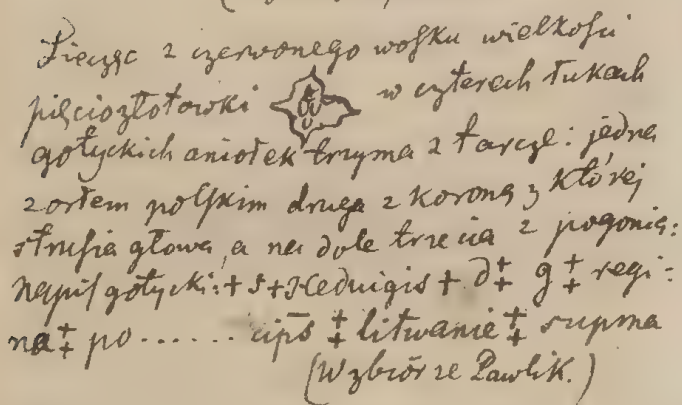 Pieczęc z czerwonego wosku wielkości
pięciozłotowki w czterech łukach
gotyckich aniołek trzyma 2 tarcze: jedna
z orłem polskim druga z koroną z której
strusia głowa, a na dole trzecia z pogonią:
napis gotycki: + s + Heduigis + d ‡ g ‡ regi-
na ‡ po ...... cips̄ ‡ litwanie ‡ supma
(W zbiorze Pawlik.)